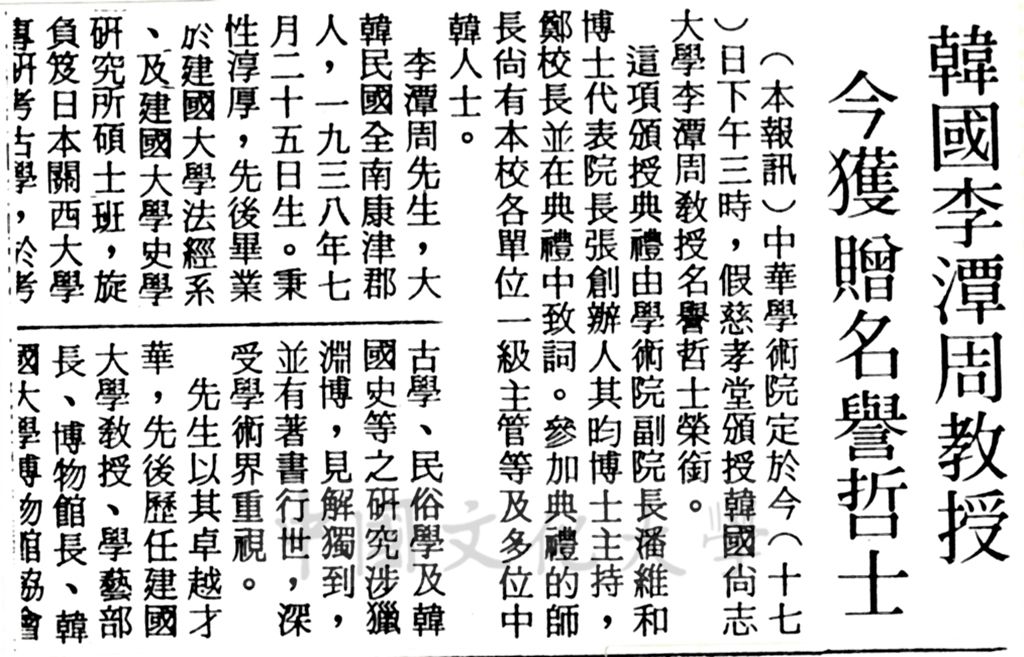 韓國李潭周教授
今獲贈名譽哲士
（本報訊）中華學術院定於今（十七
）日下午三時，假慈孝堂頒授韓國尚志
大學李潭周教授名譽哲士榮銜。
這項頒授典禮由學術院副院長潘維和
博士代表院長張創辦人其昀博士主持，
鄭校長並在典禮中致詞。參加典禮的師
長尚有本校各單位一級主管等及多位中
韓人士。
李潭周先生，大
韓民國全南康津郡
人，一九三八年七
月二十五日生。秉
性淳厚，先後畢業
於建國大學法經系
、及建國大學史學
研究所碩士班，旋
負笈日本關西大學
專研考古學，於考
古學、民俗學及韓
國史等之研究涉獵
淵博，見解獨到，
並有著書行世，深
受學術界重視。
先生以其卓越才
華，先後歷任建國
大學教授、學藝部
長、博物館長、韓
國大學博物館協會
中國文化大學